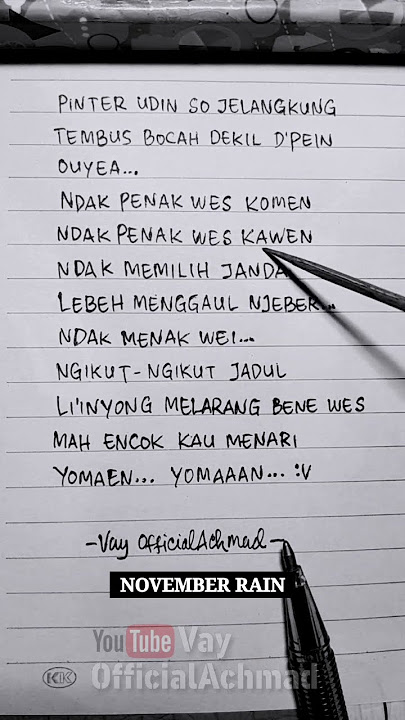 PINTER UDIN SO JELANGKUNG
TEMBUS BOCAH DEKIL D'PEIN
OUYEA...
NDAK PENAK WES KOMEN
NDAK PENAK WES KAWEN
NDAK MEMILIH JANDA
LEBEH MENGGAUL NJEBER...
NDAK MENAK WEI...
NGIKUT-NGIKUT JADUL
LI'INYONG MELARANG BENE WES
MAH ENCOK KAU MENARI
YOMAEN... YOMAAAN... :V
-Vay OfficialAchmad-
NOVEMBER RAIN
YouTube Vay
OfficialAchmad
KK